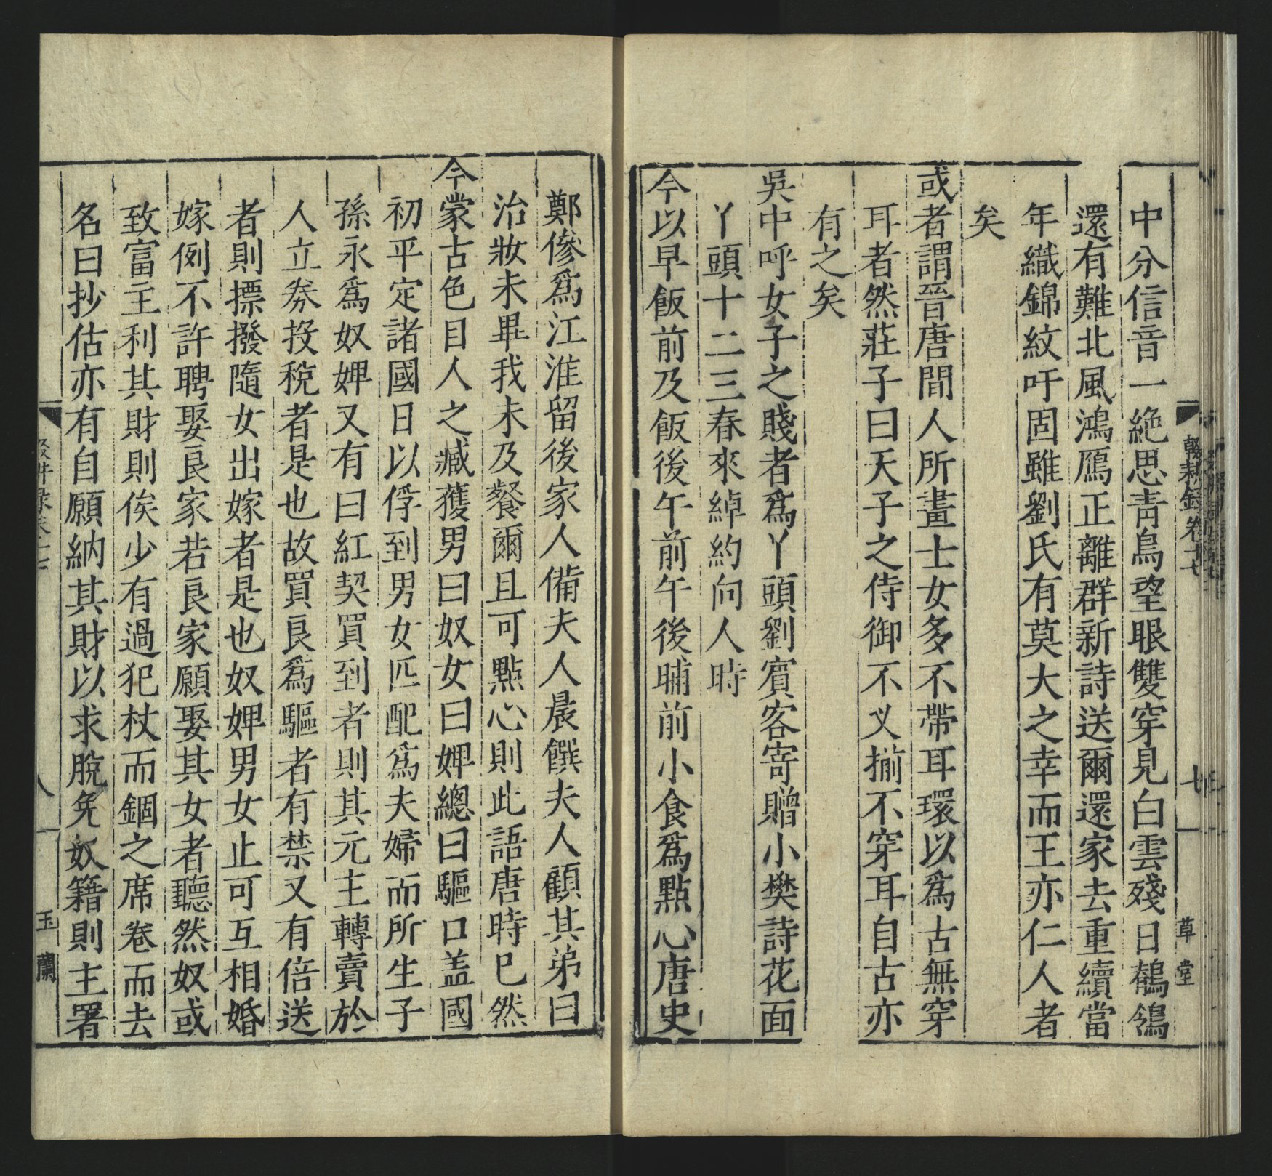 輟耕錄卷十七
七
草堂
中分信音一絶思靑鳥望眼雙穿見白雲殘日鶺鴒
還有難北風鴻鴈正離群新詩送爾還家去重續當
年織錦紋吁固雖劉氏有莫大之幸而王亦仁人者
矣
或者謂晉唐間人所畫士女多不帶耳環以爲古無穿
耳者然莊子曰天子之侍御不义揃不穿耳自古亦
有之矣
吳中呼女子之賤者爲丫頭劉賓客寄贈小樊詩花面
丫頭十二三春來綽約向人時
今以早飯前及飯後午前午後晡前小食爲點心唐史
鄭傪爲江淮留後家人備夫人晨饌夫人顧其弟曰
治妝未畢我未及餐爾且可點心則此語唐時已然
今蒙古色目人之臧獲男曰奴女曰婢總曰驅口蓋國
初平定諸國日以俘到男女匹配爲夫婦而所生子
孫永爲奴婢又有曰紅契買到者則其元主轉賣於
人立券投稅者是也故買良爲驅者有禁又有倍送
者則摽撥隨女出嫁者是也奴婢男女止可互相婚
嫁例不許聘娶良家若良家願娶其女者聽然奴或
致富主利其財則俟少有過犯杖而錮之席卷而去
名曰抄估亦有自願納其財以求脫免奴籍則主署
八
玉蘭